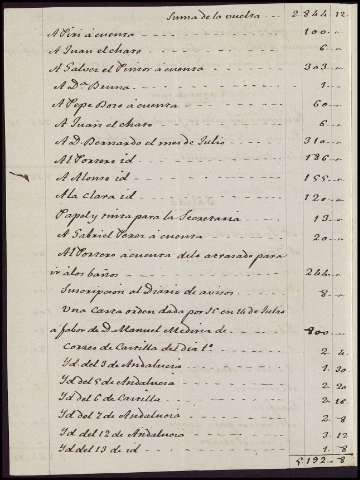 Suma de la vuelta 2844 12
A Piri á cuenta 100
A Juan el charo 6
A Galvez el Pintor á cuenta 303
A Dª Bruna 1
A Pepe Boro á cuenta 60
A Juan el charo 6
A D. Bernardo el mes de Julio 310
Al Portero id 186
A Alonso id 155
A la Clara id 120
Papel y tinta para la Secretaria 13
A Gabriel Perez á cuenta 20
Al Portero á cuenta de lo atrasado para
ir á los baños 244
Suscripcion al Diario de avisos 8
Una carta orden dada por Sª en 14 de Julio
a fabor de D. Manuel Medina de 800
Correo de Castilla del dia 1º 2 4
Yd del 3 de Andalucia 1 30
Yd del 5 de Andalucia 2 20
Yd del 6 de Castilla 2 16
Yd del 7 de Andalucia 2 8
Yd del 12 de Andalucia 3 12
Yd del 13 de id 1 8
5192 8